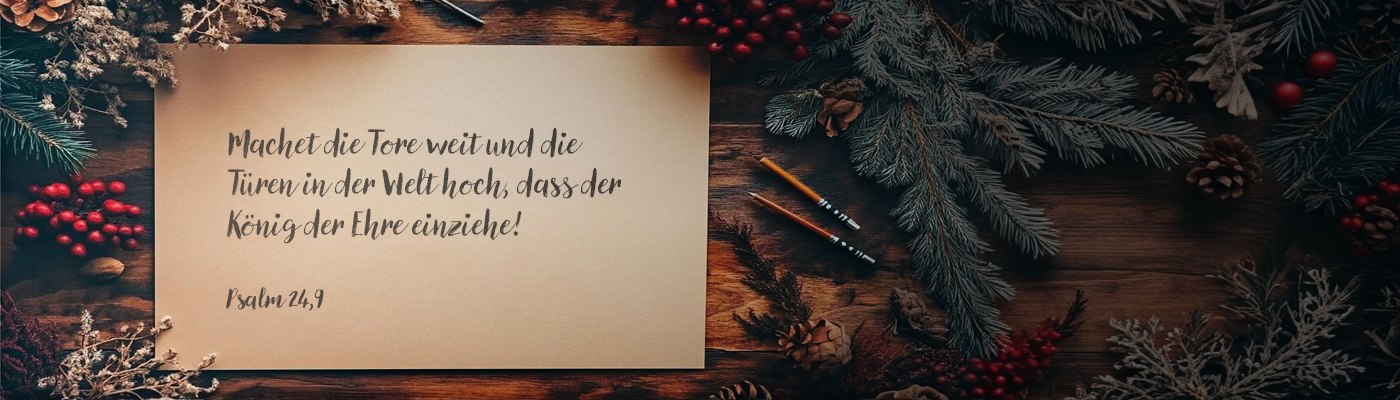 Machet die Tore weit und die
Türen in der Welt hoch, dass der
König der Ehre einziehe!
Psalm 24,9